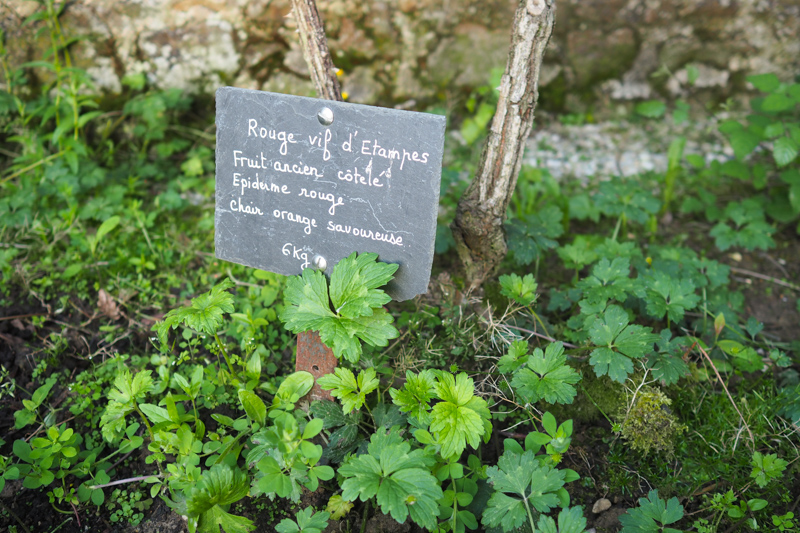 Rouge vif d'Etampes
Fruit ancien côtelé
Epiderme rouge
Chair orange savoureuse
6Kg